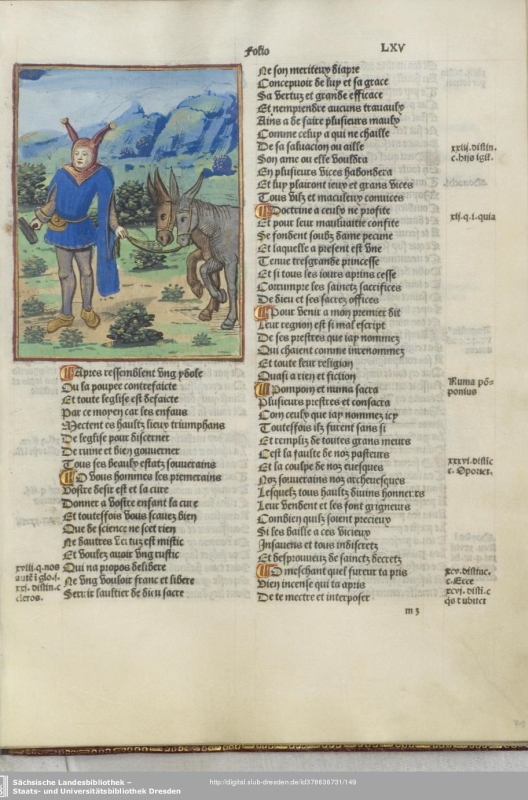 Folio LXV
Ne son merileux diapre
Concepuoit de luy et sa grace
Sa vertuz et grande efficace
Et nemprendre aucuns travaulx
Ains a de faire plusieurs maulx
Comme celuy a qui ne chaille
De sa salvacion ou aille
Son ame ou elle vouldra
En plusieurs vices habondera
Et luy plairont ieux et grans vices
Tous vilz et maculeux convices
Doctrine a ceulx ne profite
Et pour leur mauluaitie confite
Se fondent soubz dame pecune
Et laquelle a present est vne
Tenue tresgrande princesse
Et si tous les iours aprins cesse
Corrumpre les sainctz sacrifices
De dieu et ses sacrez offices
Pour venir a mon premier dit
Leur regnon est si mal escript
De ses prestres que iay nommez
Qui estoient comme
Et toute leur religion
Quasi a rien et fiction
Pompon et numa sacra
Plusieurs prestres et consacra
Com ceulx que iay nommez icy
Touteffois ilz furent sans si
Et rempliz de toutes grans meurs
Cest la faulte de noz pasteurs
Et la coulpe de noz euesques
Noz souuerains noz archeuesques
Lesquelz tous haultz diuins honneurs
Leur vendent et les font grigneurs
Combien quilz soient precieux
Si les baille a ces vicieux
Insauens et tous indiscretz
Et desprouueuz de sainctz decretz
O meschant quel fureur ta pris
Bien incense qui ta apris
De te mectre et interposer
m 3
xxiij. distin.
c. dñs igit.
xij. q. i. quia
Numa põ-
ponius
xxxvi. distic
c. Oportet.
xcv. distinc.
c. Ecce
xcvi. disti. c
Telz pres ressemblent vng ydole
Ou la poupee contrefaicte
Et toute leglise est defaicte
Par ce moyen car les enfans
Mectent es haultz lieux triumphans
De leglise pour discerner
De ruine et bien gouuerner
Tous ses beaulx estatz souuerains
O vous hommes les premerains
Vostre desir est et la cure
Donner a vostre enfant la cure
Et touteffois vous scauez bien
Que de science ne scet rien
Ne dautres vertuz est mistic
Et voulez auoir vng rustic
Qui na propos delibere
Ne vng vouloir franc et libere
Seruir saultier de dieu sacre
xviii. q. nos
autē i glo. i.
xxi. distin. c
cleros.
Sächsische Landesbibliothek –
Staats- und Universitätsbibliothek Dresden
http://digital.slub-dresden.de/id378636731/149